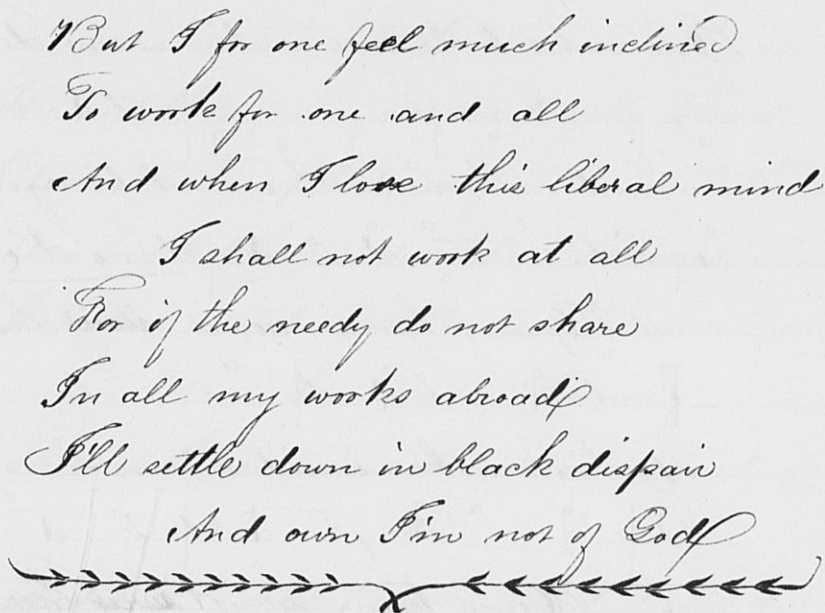 But I for one feel much inclined
To work for one and all
And when I lose this liberal mind
I shall not work at all
For if the needy do not share
In all my works abroad
I'll settle down in black dispair
And own I'm not of God